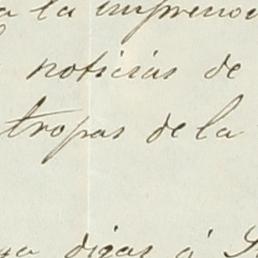 a la imprenta
noticias de
tropas de la
digas á